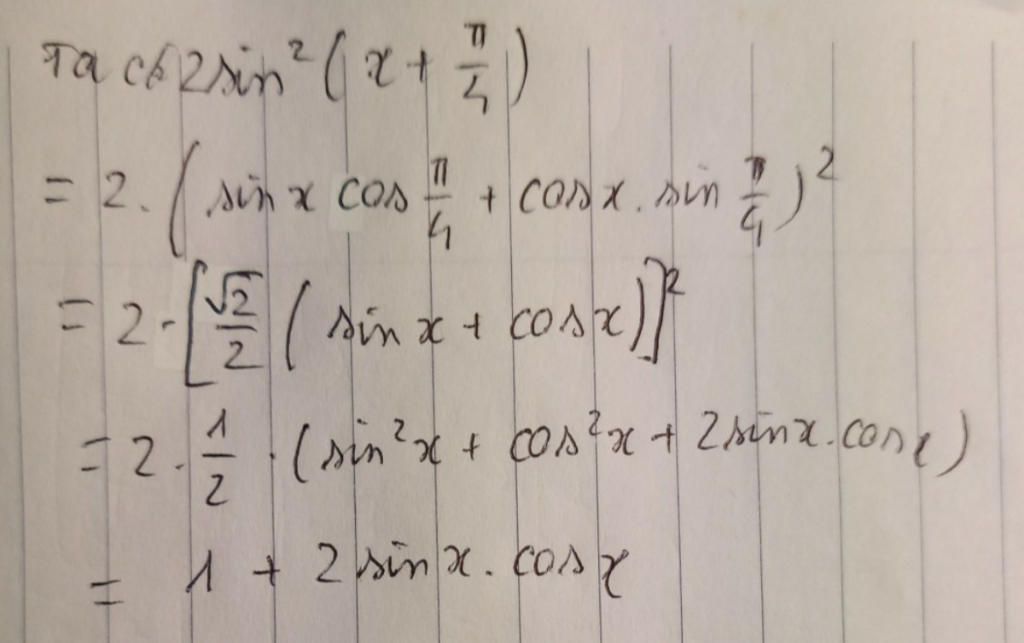 Ta có 2sin²(x + π/4)
= 2.(sin x cos π/4 + cos x. sin π/4)²
= 2.[√2/2 (sin x + cos x)]²
= 2.1/2.(sin²x + cos²x + 2sin x.cos x)
= 1 + 2 sin x. cos x